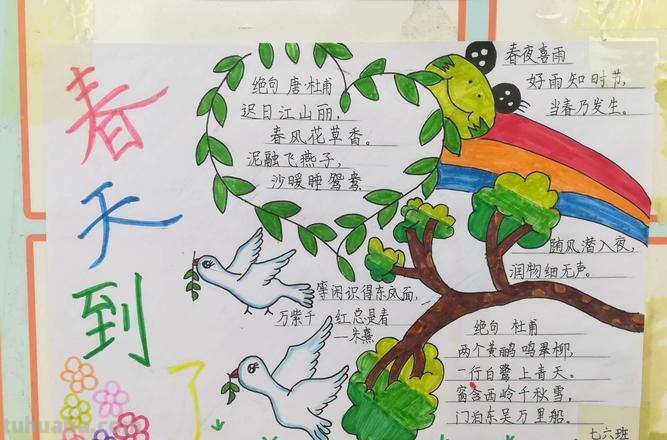 春天到了
绝句 唐·杜甫
迟日江山丽，
春风花草香。
泥融飞燕子，
沙暖睡鸳鸯。
春夜喜雨
好雨知时节，
当春乃发生。
随风潜入夜，
润物细无声。
等闲识得东风面，
万紫千 红总是春
—朱熹
绝句 杜甫
两个黄鹂鸣翠柳，
一行白鹭上青天。
窗含西岭千秋雪，
门泊东吴万里船。
七六班